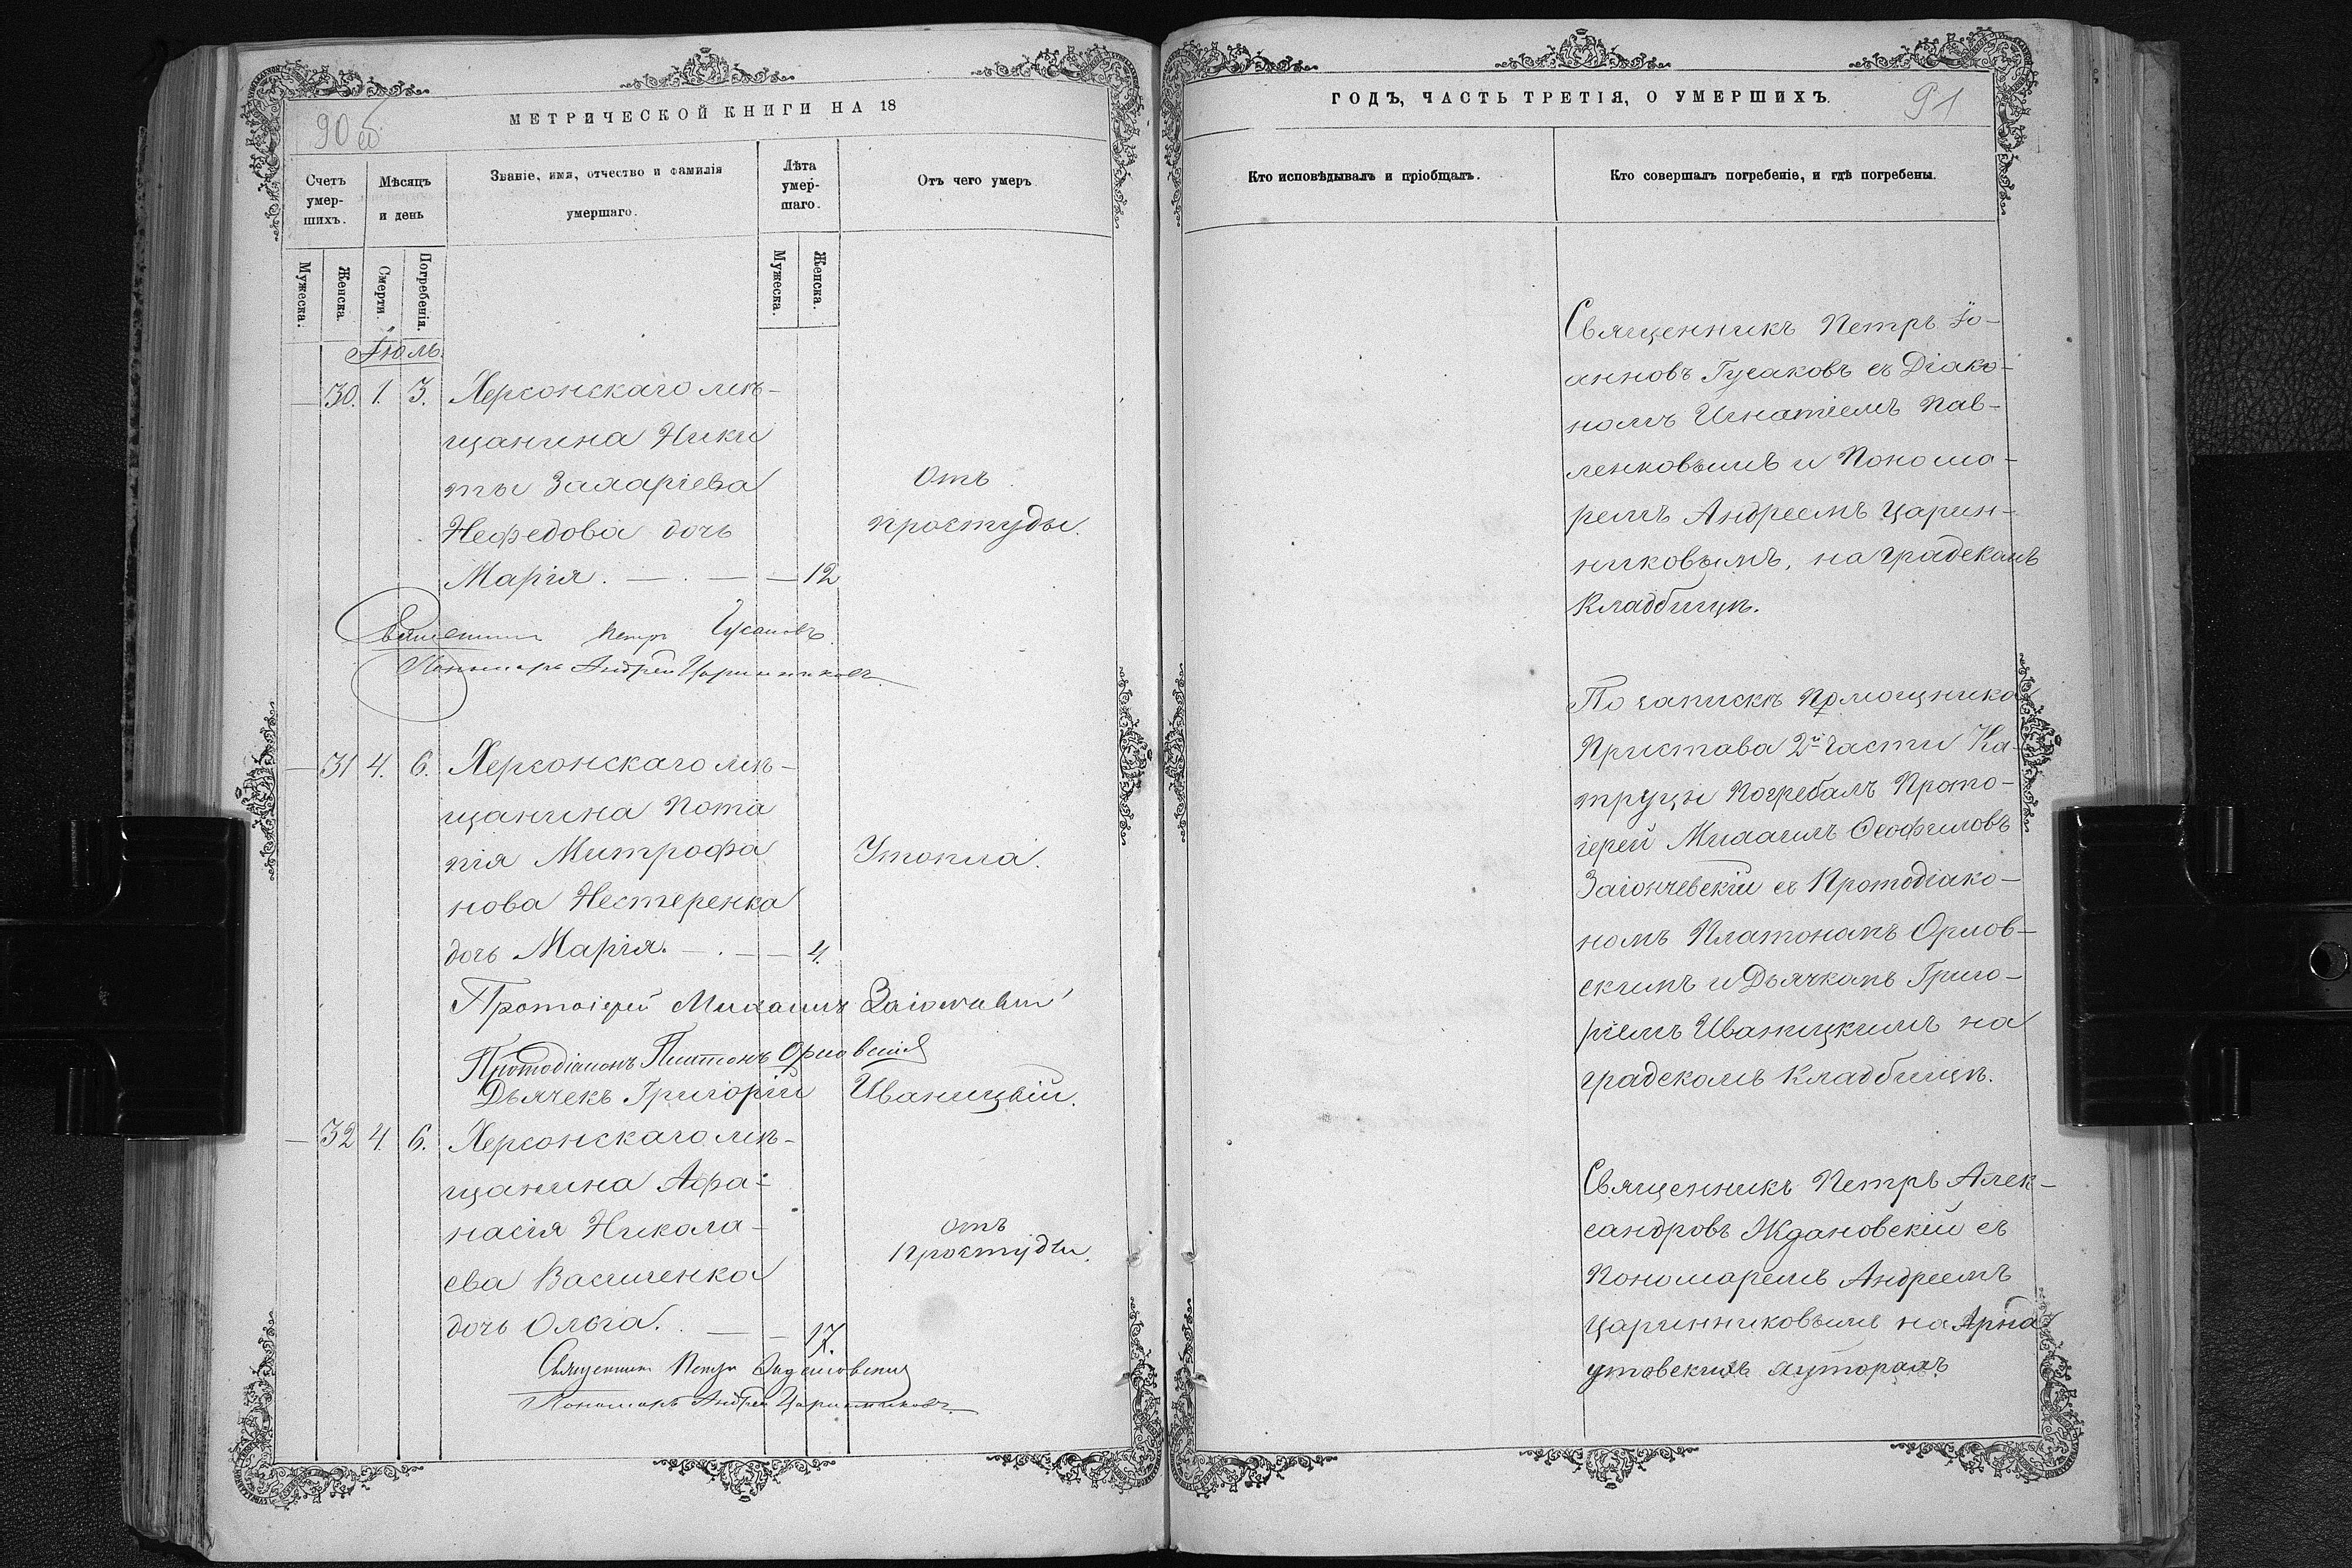 90 об
МЕТРИЧЕСКОЙ КНИГИ НА 18
Счетъ умер-
шихъ.
Мѣсяцъ
и день
Званіе, имя, отчество и фамилія
умершаго.
Лѣта
умер-
шаго.
Отъ чего умеръ
Мужеска.
Женска.
Смерти.
Погребенія.
Мужеска.
Женска.
Іюль.
— 30. 1. 3. Херсонскаго мѣ-
щанина Ники
ты Захаріева
Нефедова дочь
Марія. — . — — 12
Отъ
простуды.
Священникъ Петръ Гусаковъ
Пономарь Андрей Царинниковъ
— 31 4. 6. Херсонскаго мѣ-
щанина Пота
пія Митрофа
нова Нестеренка
дочь Марія. — . — — 4.
Утопла.
Протоіерей Михаилъ Заіончевскій
Протодіаконъ Платонъ Орловскій
Дьячекъ Григорій Иваницкій.
— 32 4. 6. Херсонскаго мѣ-
щанина Афа-
насія Никола-
ева Васиченка
дочь Ольга. . — — 17.
отъ
простуды.
Священникъ Петръ Ждановскій
Пономарь Андрей Царинниковъ
ГОДЪ, ЧАСТЬ ТРЕТІЯ, О УМЕРШИХЪ.
91
Кто исповѣдывалъ и пріобщалъ.
Кто совершалъ погребеніе, и гдѣ погребены.
Священникъ Петръ Іо-
анновъ Гусаковъ съ Діако-
номъ Игнатіемъ Пав-
ленковымъ и Понома-
ремъ Андреемъ Царин-
никовымъ, на градскомъ
Кладбищѣ.
По запискѣ Помощника
Пристава 2й части Ка-
труцы Погребалъ Прото-
іерей Михаилъ Ѳеофиловъ
Заіончевскій съ Протодіако-
номъ Платономъ Орлов-
скимъ и Дьячкомъ Григо-
ріемъ Иваницкимъ на
градскомъ Кладбищѣ.
Священникъ Петръ Алек-
сандровъ Ждановскій съ
Пономаремъ Андреемъ
Царинниковымъ на Арна
утовскихъ хуторахъ.